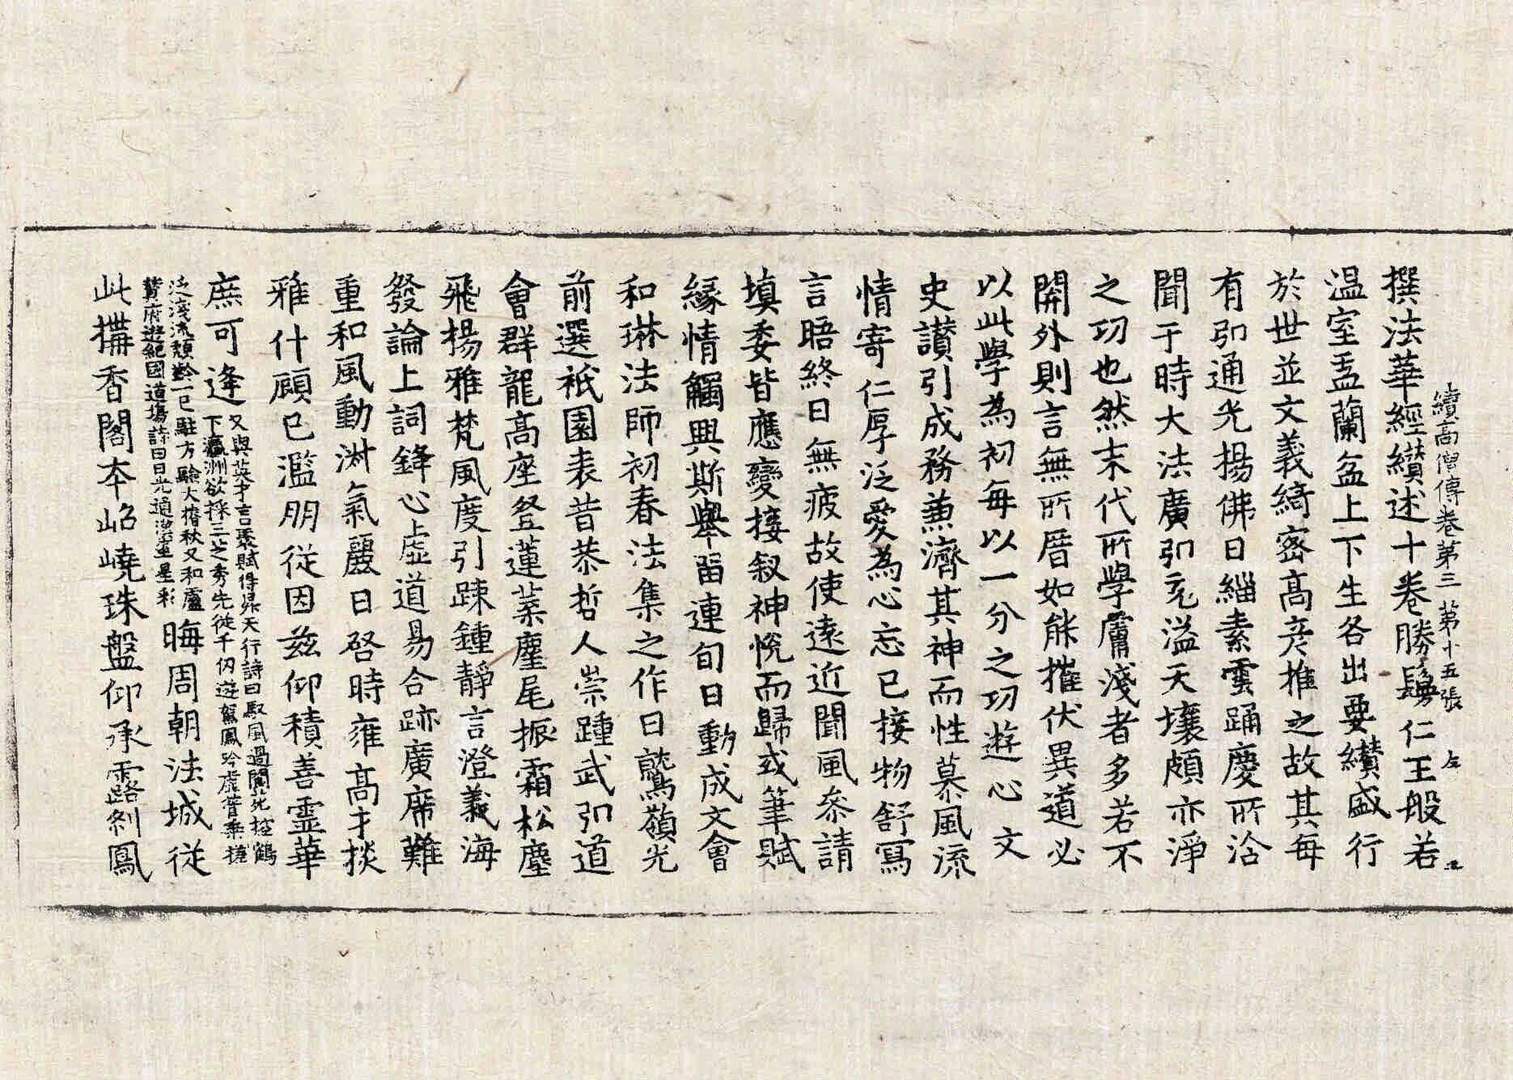 續高僧傳卷第三　第十五張　左
撰法華經纘述十卷勝鬘仁王般若
溫室盂蘭盆上下生各出要纘盛行
於世並文義綺密高彥推之故其每
有弘通光揚佛日緇素雲踊慶所洽
聞于時大法廣弘充溢天壤頗亦淨
之功也然末代所學膚淺者多若不
開外則言無所厝如能摧伏異道必
以此學為初每以一分之功遊心文
史讃引成務兼濟其神而性慕風流
情寄仁厚泛愛為心忘己接物舒寫
言晤終日無疲故使遠近聞風參請
填委皆應變接叙神悅而歸或筆賦
緣情觸興斯舉留連旬日動成文會
和琳法師初春法集之作曰鷲嶺光
前選祇園表昔恭哲人崇踵武弘道
會群龍高座登蓮葉麈尾振霜松塵
飛揚雅梵風度引踈鍾靜言澄義海
發論上詞鋒心虛道易合跡廣席難
重和風動淋氣麗日啓時雍高才掞
雅什顧已濫朋從因茲仰積善靈華
庶可逢
又與英才言聚賦得昇天行詩曰馭風過閬苑控鶴
下瀛洲欲採三芝秀先從千仞遊駕鳳吟虛管乘槎
泛淺流頹齡一已駐方驗大椿秋又和盧
贊府遊紀國道場詩曰日光通漢室星彩
晦周朝法城從
此搆香閣本岧嶢珠盤仰承露刹鳳